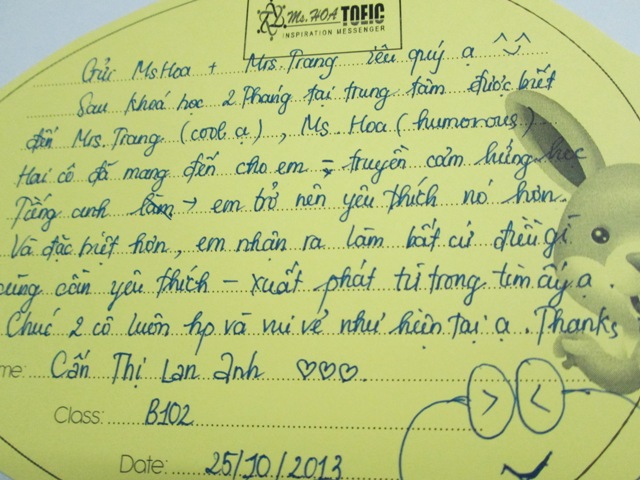 Ms. HOA TOEIC
INSPIRATION MESSENGER
Gửi Ms Hoa + Mrs. Trang yêu quý ạ ^^
Sau khoá học 2 tháng tại trung tâm được biết
đến Mrs. Trang (cool ạ), Ms Hoa (humorous)
Hai cô đã mang đến cho em - truyền cảm hứng học
Tiếng anh → em trở nên yêu thích nó hơn.
Và đặc biệt hơn, em nhận ra làm bất cứ điều gì
cũng cần yêu thích - xuất phát từ trong tim ấy ạ.
Chúc 2 cô luôn hp và vui vẻ như hiện tại ạ. Thanks
me: Cấn Thị Lan Anh ♡♡♡.
Class: B102
Date: 25/10/2013